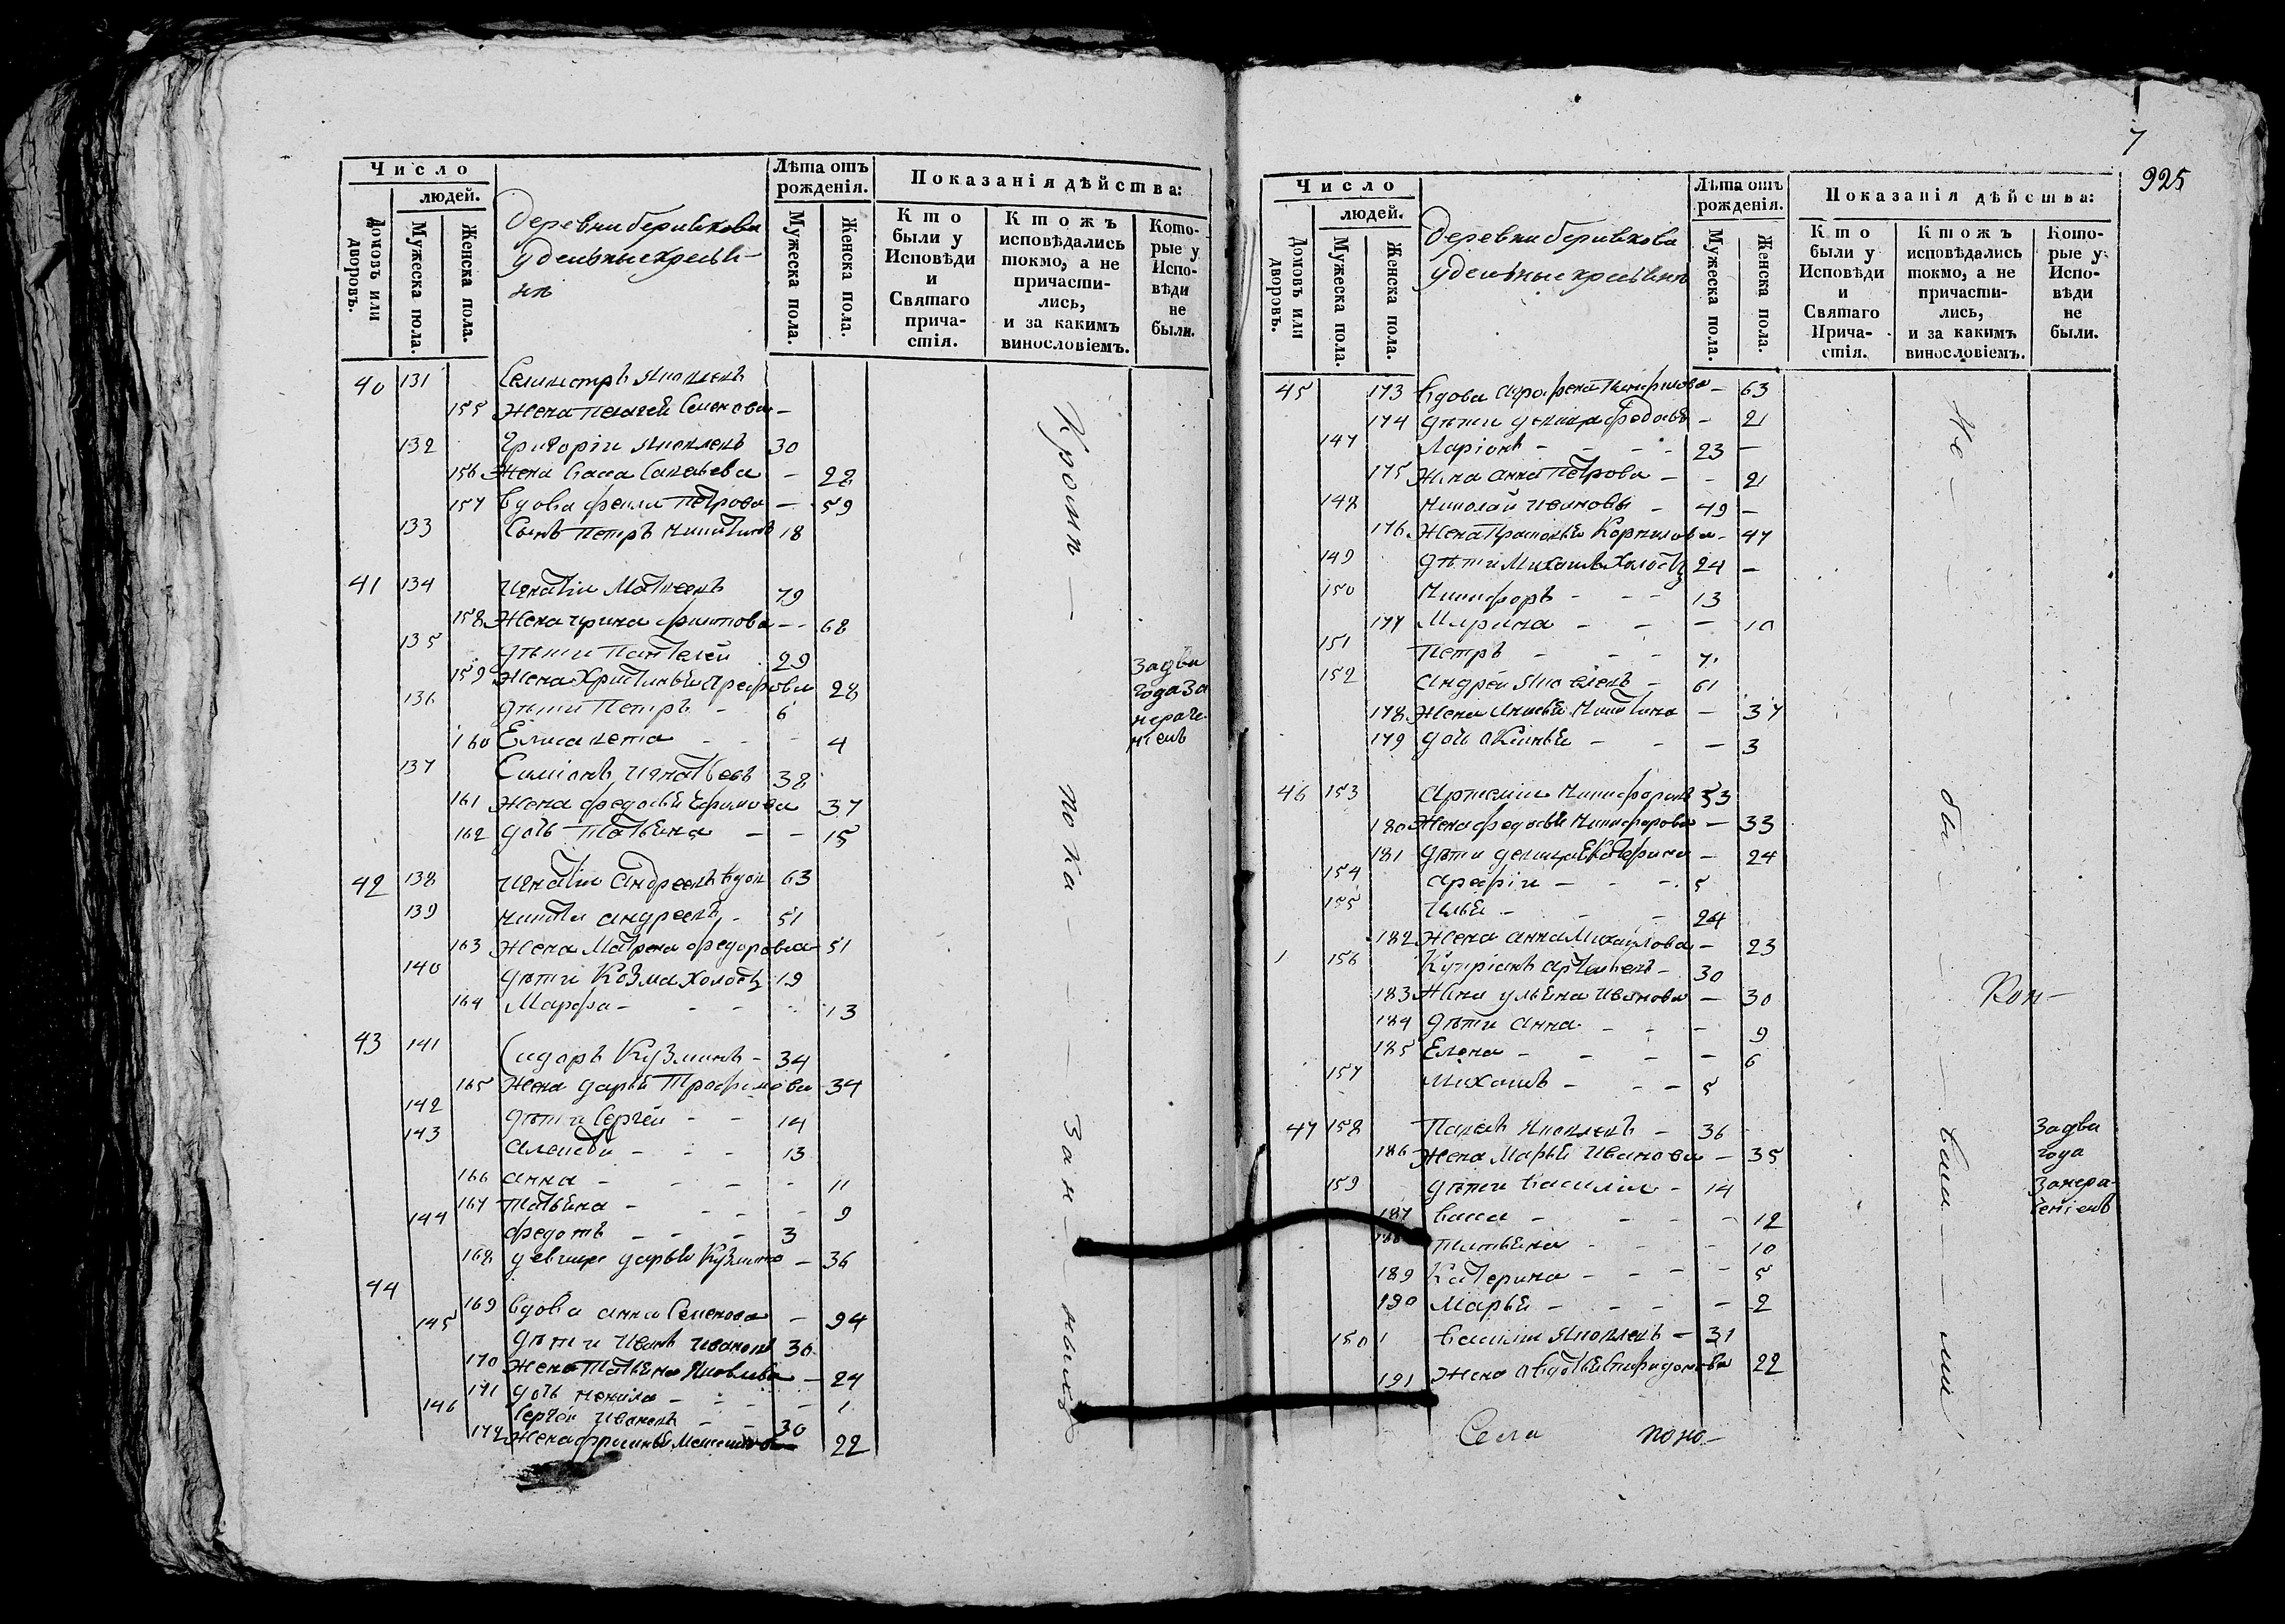 Число
людей.
Домовъ или дворовъ.
Мужеска пола.
Женска пола.
Деревни
удельные крестья-
не
Лѣта отъ рожденія.
Мужеска пола.
Женска пола.
Показанія дѣйства:
Кто были у Исповѣди и Святаго причастія.
Ктожъ исповѣдались токмо, а не причастились, и за какимъ винословіемъ.
Которые у Исповѣди не были.
40 131 Селиверстръ Яковлевъ
155 Жена Пелагея Семенова —
132 Григорій Яковлевъ 30
156 Жена Васса Савельева — 28
157 Вдова Фекла Петрова — 59
133 Сынъ Петръ Никитинъ 18
41 134 Игнатій Матвеевъ 79
158 Жена Ирина Филипова — 68
135 Дѣти Пантелей 29
159 Жена Христинья Арефьева 28
136 Дѣти Петръ — 6
160 Елисавета — 4
137 Симіонъ Игнатьевъ 38
161 Жена Федосья Ефимова 37
162 Дочь Татьяна — — 15
42 138 Игнатій Андреевъ вдов 63
139 Никита Андреевъ — 51
163 Жена Матрена Федорова 51
140 Дѣти Козма холостъ 19
164 Марфа — — — 13
43 141 Сидоръ Кузминъ — 34
165 Жена Дарья Трофимова 34
142 Дѣти Сергей — — 14
143 Алексѣй — — — 13
166 Анна — — — — 11
167 Татьяна — — — — 9
144 Федотъ — — — 3
168 Девица Дарья Кузмина — 36
44 169 Вдова Анна Семенова — 94
145 Дѣти Иванъ Ивановъ 36
170 Жена Татьяна Яковлева — 24
171 Дочь Ненила — — — 1
146 Сергей Ивановъ — — 30
172 Жена 22
Кроми — по ка — — — зан — — ныхъ
За два
года за
нераче-
ніемъ
7
925
Число
людей.
Домовъ или дворовъ.
Мужеска пола.
Женска пола.
Деревни
удельные крестьяне
Лѣта отъ рожденія.
Мужеска пола.
Женска пола.
Показанія дѣйства:
Кто были у Исповѣди и Святаго Причастія.
Ктожъ исповѣдались токмо, а не причастились, и за какимъ винословіемъ.
Которые у Исповѣди не были.
45 173 Вдова Агрофена — 63
174 Дѣти девица Федосья — 21
147 Ларіонъ — — — — 23 —
175 Жена Анна Петрова — — 21
148 Николай Ивановъ — 49 —
176 Жена Прасковья Корнилова — 47
149 Дѣти Михаилъ холостъ 24 —
150 Никифоръ — — — 13
177 Марина — — — 10
151 Петръ — — — 7
152 Андрей Яковлевъ — 61
178 Жена Никитина — 37
179 Дочь Аксинья — — — 3
46 153 Артемій Никифоровъ 53
180 Жена Федосья Никифорова — 33
181 Дѣти девица Екатерина — 24
154 Арефій — — — 5
155 Илья — — — 24
182 Жена Анна Михайлова — 23
1 156 Купріянъ Артемьевъ — 30
183 Жена Ульяна Иванова — 30
184 Дѣти Анна — — — 9
185 Елена — — — — 6
157 Михаилъ — — — 5
47 158 Павелъ Яковлевъ — 36
186 Жена Марья Иванова — 35
159 Дѣти Василій — 14
187 Васса — — — — 12
188 Татьяна — — — 10
189 Катерина — — — — 5
190 Марья — — — — 2
150 1 Василій Яковлевъ — 31
191 Жена Авдотья Спиридонова 22
Не — — — бы — — — вали — — — ми
Ком —
За два
года
за нера-
ченіемъ
Села поно —